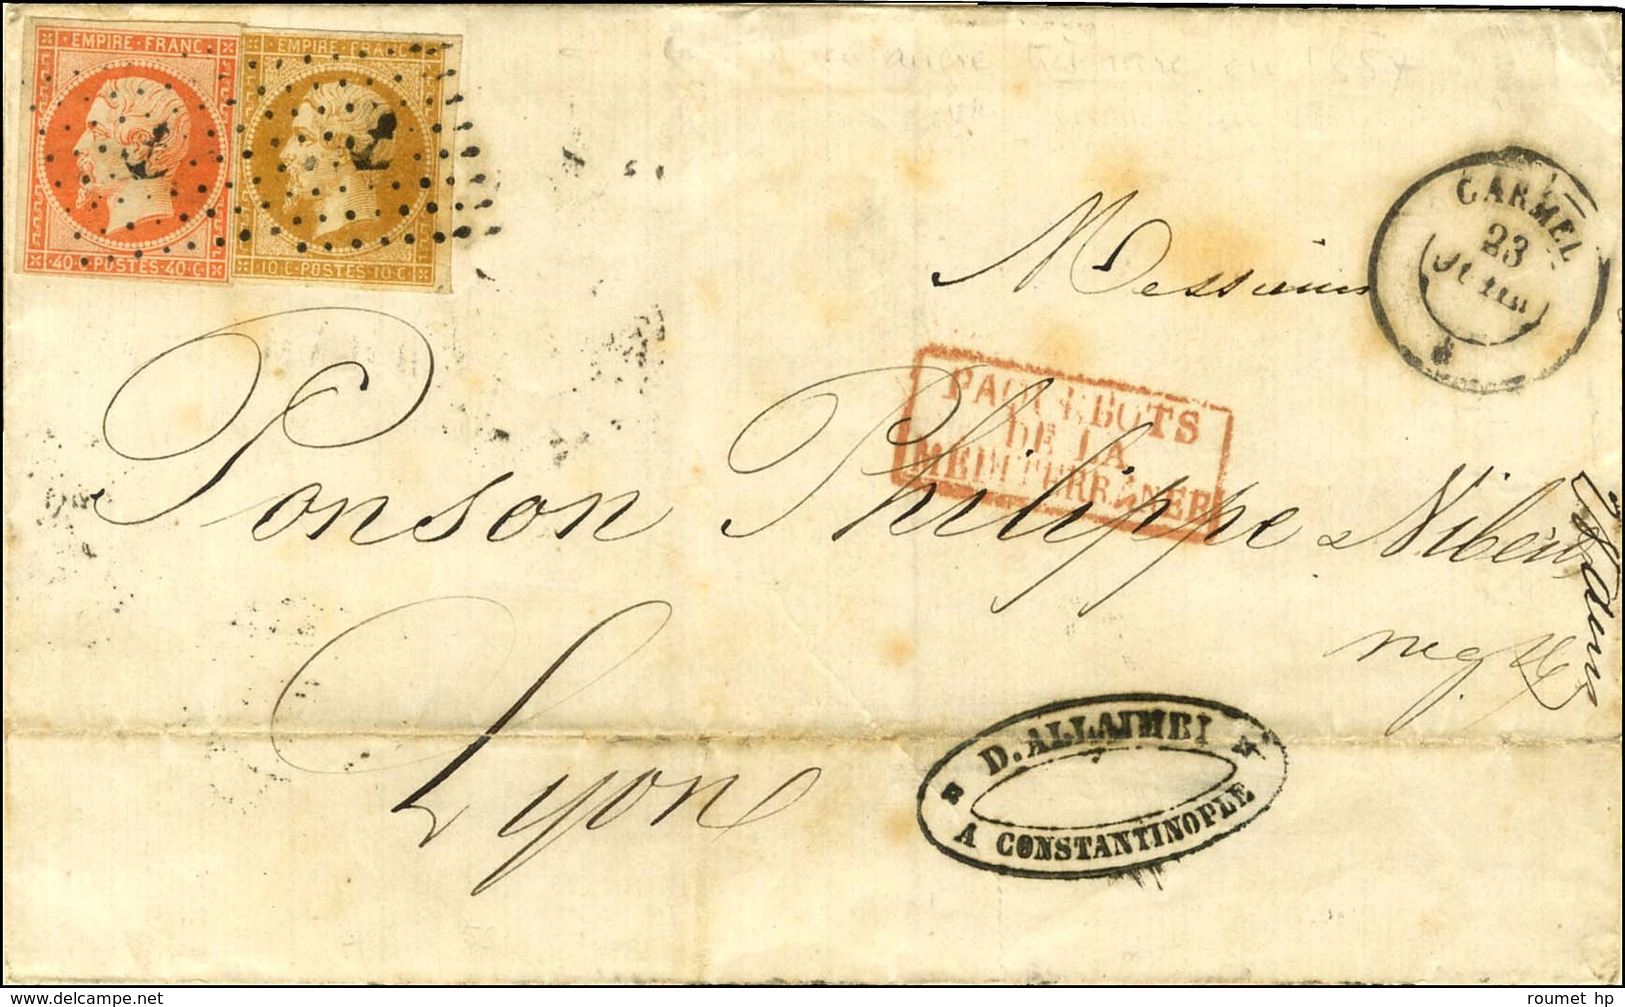 EMPIRE · FRANC ·
40·C·POSTES·40·C
EMPIRE · FRANC
10·C·POSTES·10·C
en 1857
CARMEL
23
JUIN
Messieurs
PAQUEBOTS
DE LA
MÉDITERRANÉE
Ponson Philippe
Lyon
D. ALLAIMBI
A CONSTANTINOPLE
www.delcampe.net
roumet hp